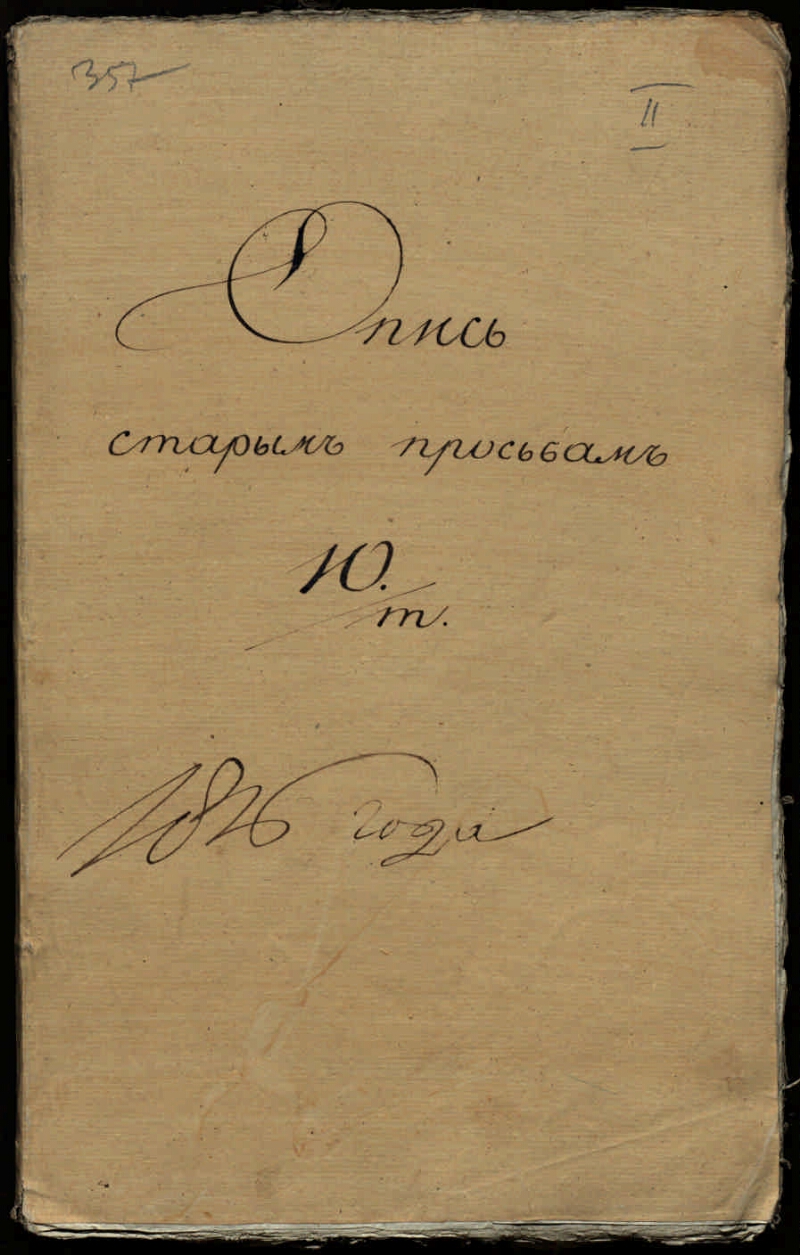 357
II
Опись
старымъ просьбамъ
Ю.
т.
года